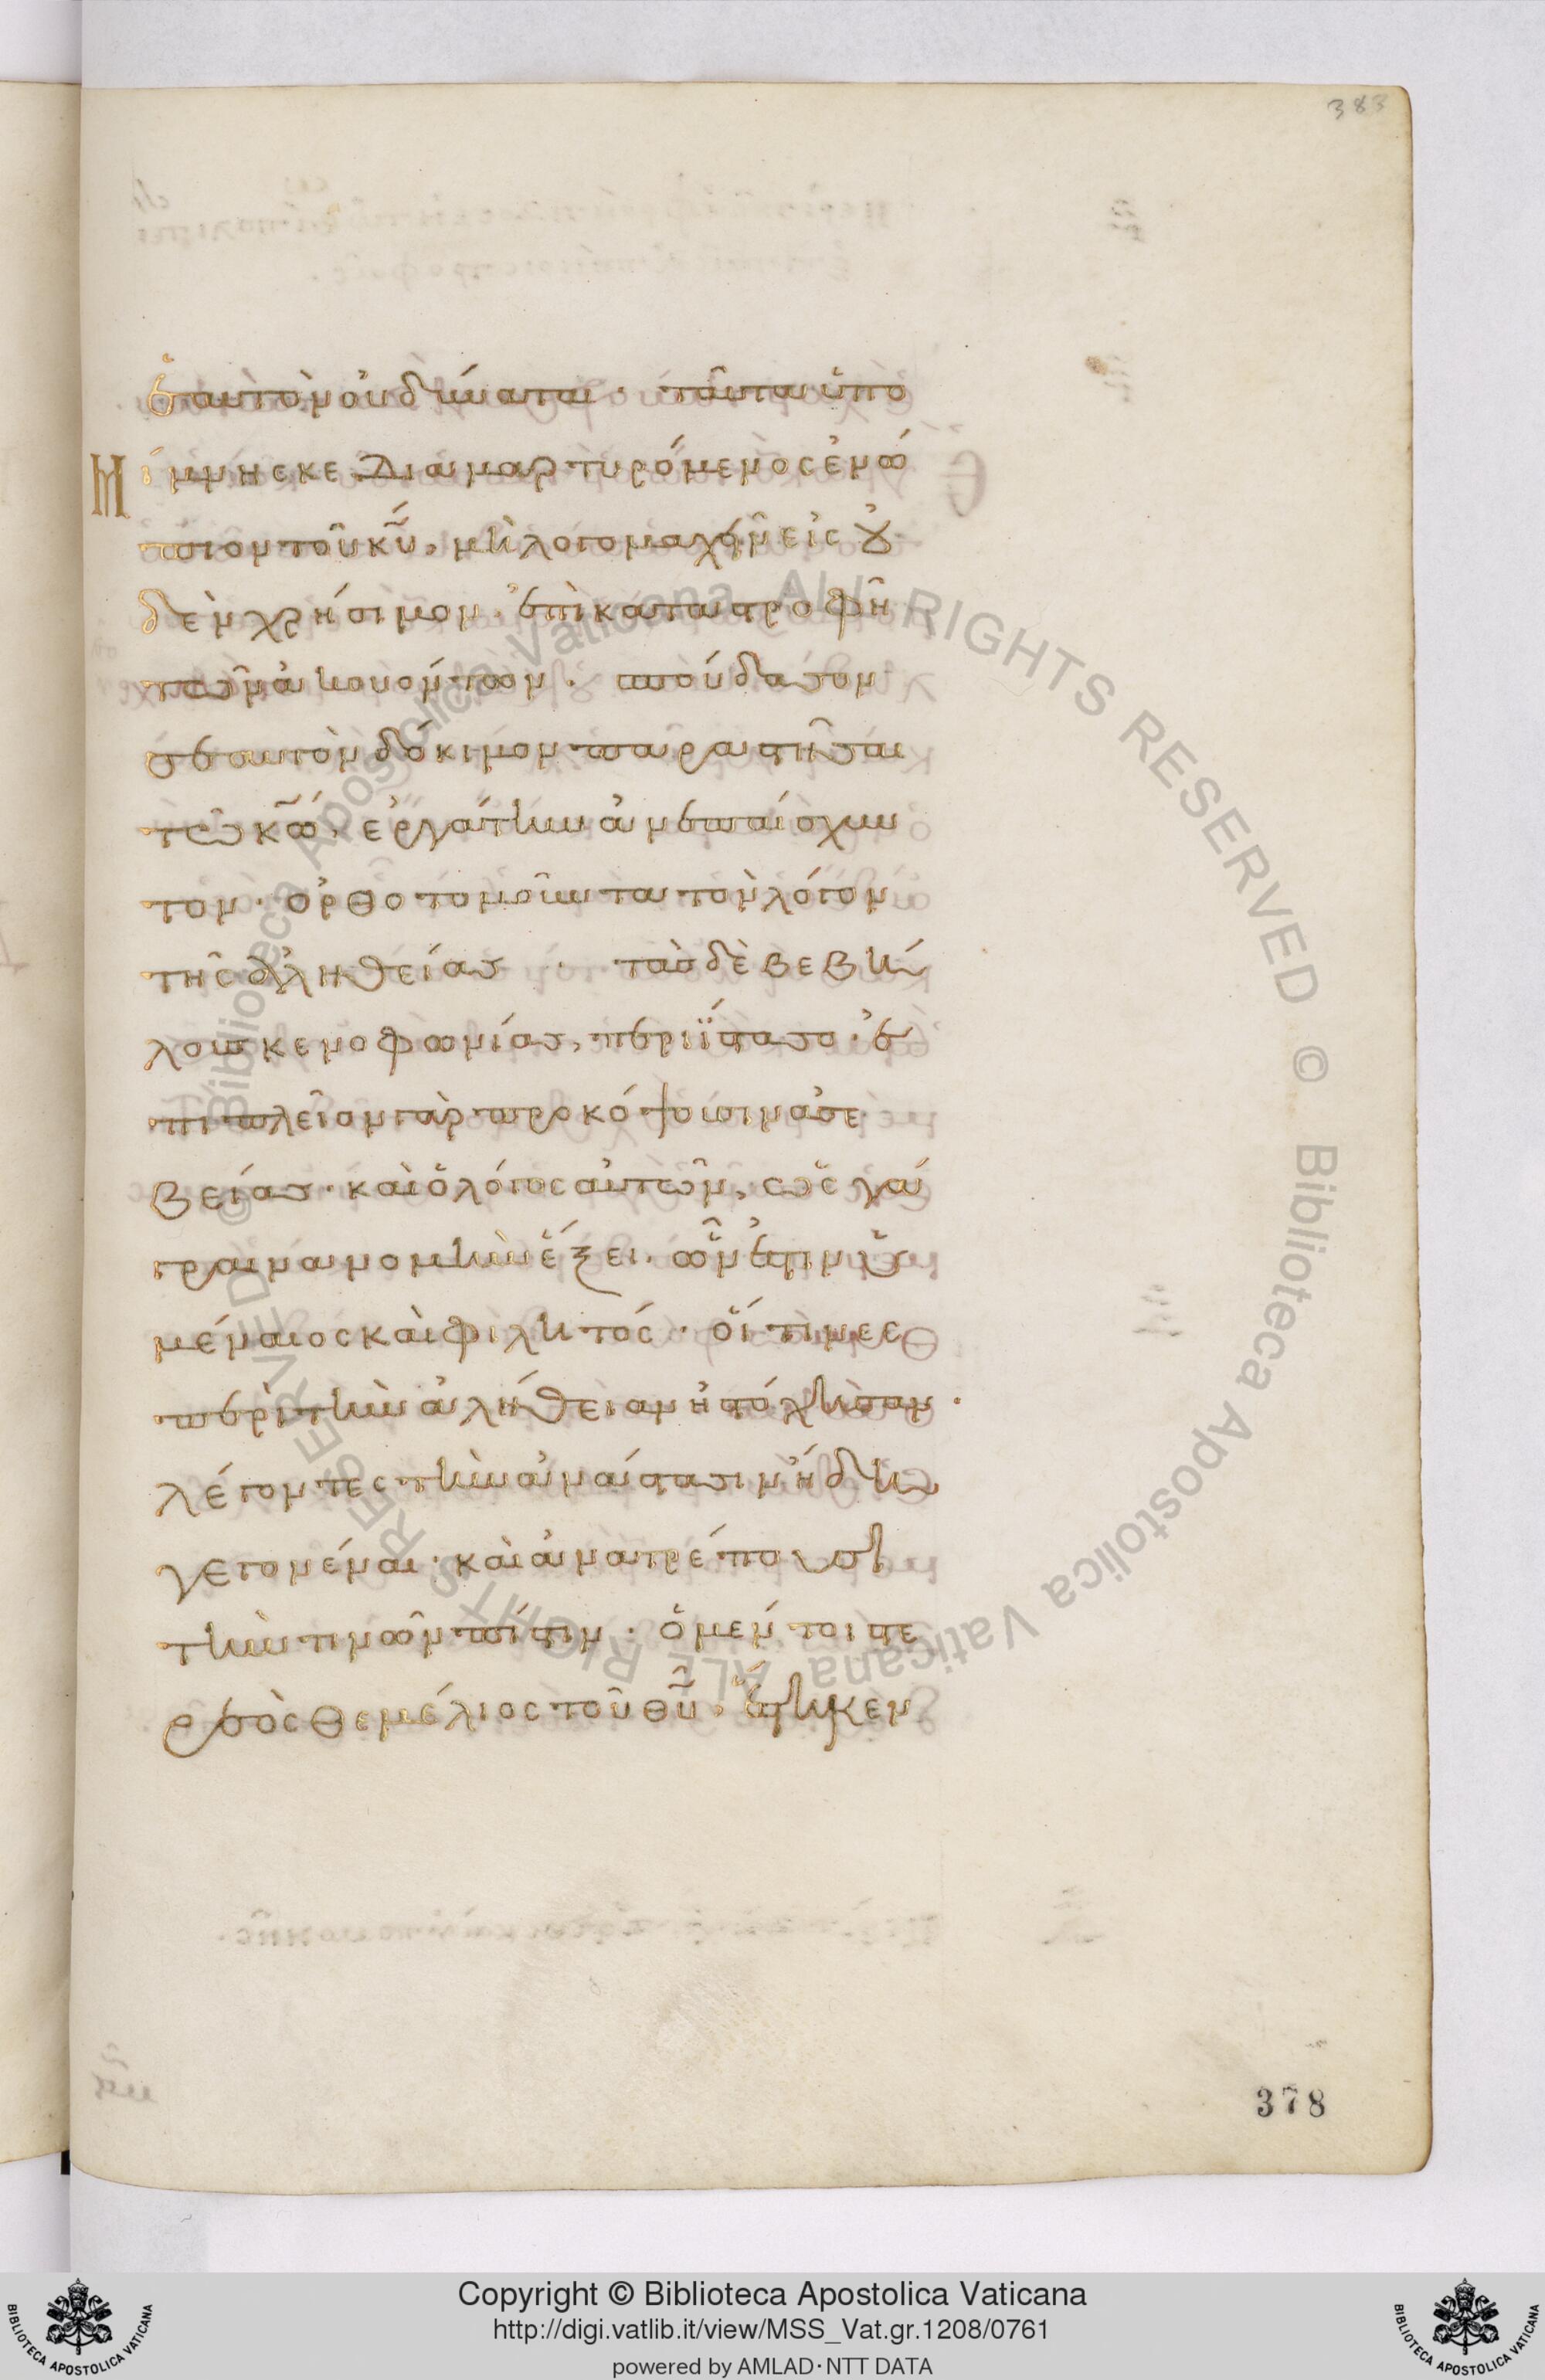 383
ἑαυτὸν οὐ δύναται· ταῦτα ὑπο
μίμνησκε διαμαρτυρόμενος ἐνώ
πιον τοῦ κ̅υ̅, μὴ λογομαχεῖν εἰς οὐ
δὲν χρήσιμον· ἐπὶ καταστροφῆ
τῶν ἀκουόντων· σπούδασον
σεαυτὸν δόκιμον παραστῆσαι
τῶ κ̅ω̅, ἐργάτην ἀνεπαίσχυν
τον· ὀρθοτομοῦντα τὸν λόγον
τῆς ἀληθείας· τὰς δὲ βεβή
λους κενοφωνίας, περιΐστασο· ἐ
πι πλεῖον γὰρ προκόψουσιν ἀσε
βείας· καὶ ὁ λόγος αὐτῶν, ὡς γάγ
γραινα νομὴν ἕξει· ὧν ἐστιν ὑ
μέναιος καὶ φιλητός· οἵτινες
περὶ τὴν ἀλήθειαν ἠστόχησαν·
λέγοντες τὴν ἀνάστασιν ἤδη
γεγονέναι· καὶ ἀνατρέπουσι
τὴν τινῶν πίστιν· ὁ μέντοι στε
ρεὸς θεμέλιος τοῦ θ̅υ̅, ἕστηκεν
378
© Biblioteca Apostolica Vaticana ALL RIGHTS RESERVED © Biblioteca Apostolica Vaticana ALL RIGHTS RESERVED
Copyright © Biblioteca Apostolica Vaticana
http://digi.vatlib.it/view/MSS_Vat.gr.1208/0761
powered by AMLAD·NTT DATA
BIBLIOTECA APOSTOLICA VATICANA
BIBLIOTECA APOSTOLICA VATICANA